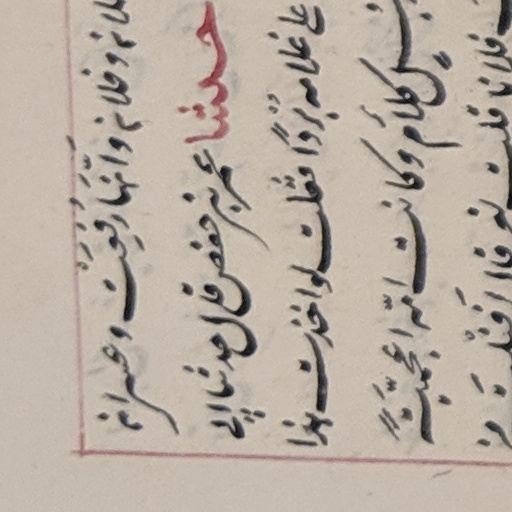 فلانه وفلانه وَاَنَّهَا رُفِعَتْ وعسى انه
حدثنا عمر بن حفص قال حدثنا ابي
على غلامه بُرْدًا فقلت لو اخذت هذا
كلأم وكانت امّه اعجميّةً
فلانا قلت نعم قال اَفَنِلْتَ من